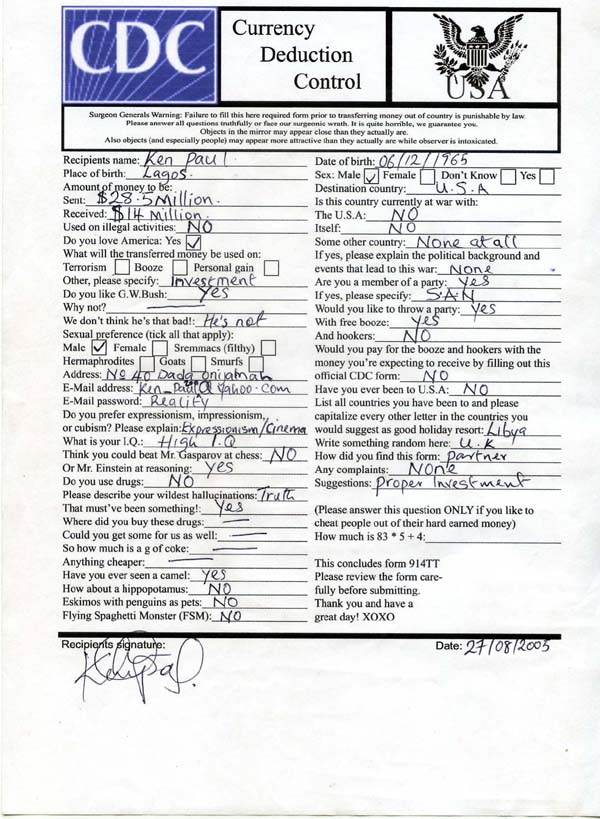 CDC
Currency
Deduction
Control
USA
Surgeon Generals Warning: Failure to fill this here required form prior to transferring money out of country is punishable by law.
Please answer all questions truthfully or face our surgeonic wrath. It is quite horrible, we guarantee you.
Objects in the mirror may appear close than they actually are.
Also objects (and especially people) may appear more attractive than they actually are while observer is intoxicated.
Recipients name: Ken Paul.
Place of birth: Lagos.
Amount of money to be:
Sent: $28.5 Million.
Received: $14 Million.
Used on illegal activities: NO
Do you love America: Yes
What will the transferred money be used on:
Terrorism Booze Personal gain
Other, please specify: Investment
Do you like G.W.Bush: Yes
Why not?
We don't think he's that bad!: He's not
Sexual preference (tick all that apply):
Male Female Sremmacs (filthy)
Hermaphrodites Goats Smurfs
Address: No 40 Dada Onijamah
E-Mail address: Ken_Paul@yahoo.com
E-Mail password: Reality
Do you prefer expressionism, impressionism,
or cubism? Please explain: Expressionism/Cinema
What is your I.Q.: High I.Q
Think you could beat Mr. Gasparov at chess: NO
Or Mr. Einstein at reasoning: Yes
Do you use drugs: NO
Please describe your wildest hallucinations: Truth
That must've been something!: Yes
Where did you buy these drugs:
Could you get some for us as well:
So how much is a g of coke:
Anything cheaper:
Have you ever seen a camel: Yes
How about a hippopotamus: NO
Eskimos with penguins as pets: NO
Flying Spaghetti Monster (FSM): NO
Date of birth: 06/12/1965
Sex: Male Female Don't Know Yes
Destination country: U.S.A
Is this country currently at war with:
The U.S.A: NO
Itself: NO
Some other country: None at all
If yes, please explain the political background and
events that lead to this war: None
Are you a member of a party: Yes
If yes, please specify: S.A.N
Would you like to throw a party: Yes
With free booze: Yes
And hookers: NO
Would you pay for the booze and hookers with the
money you're expecting to receive by filling out this
official CDC form: NO
Have you ever been to U.S.A: NO
List all countries you have been to and please
capitalize every other letter in the countries you
would suggest as good holiday resort: Libya
Write something random here: U.K
How did you find this form: Partner
Any complaints: None
Suggestions: Proper Investment
(Please answer this question ONLY if you like to
cheat people out of their hard earned money)
How much is 83 * 5 + 4:
This concludes form 914TT
Please review the form care-
fully before submitting.
Thank you and have a
great day! XOXO
Recipients signature:
Date: 27/08/2005